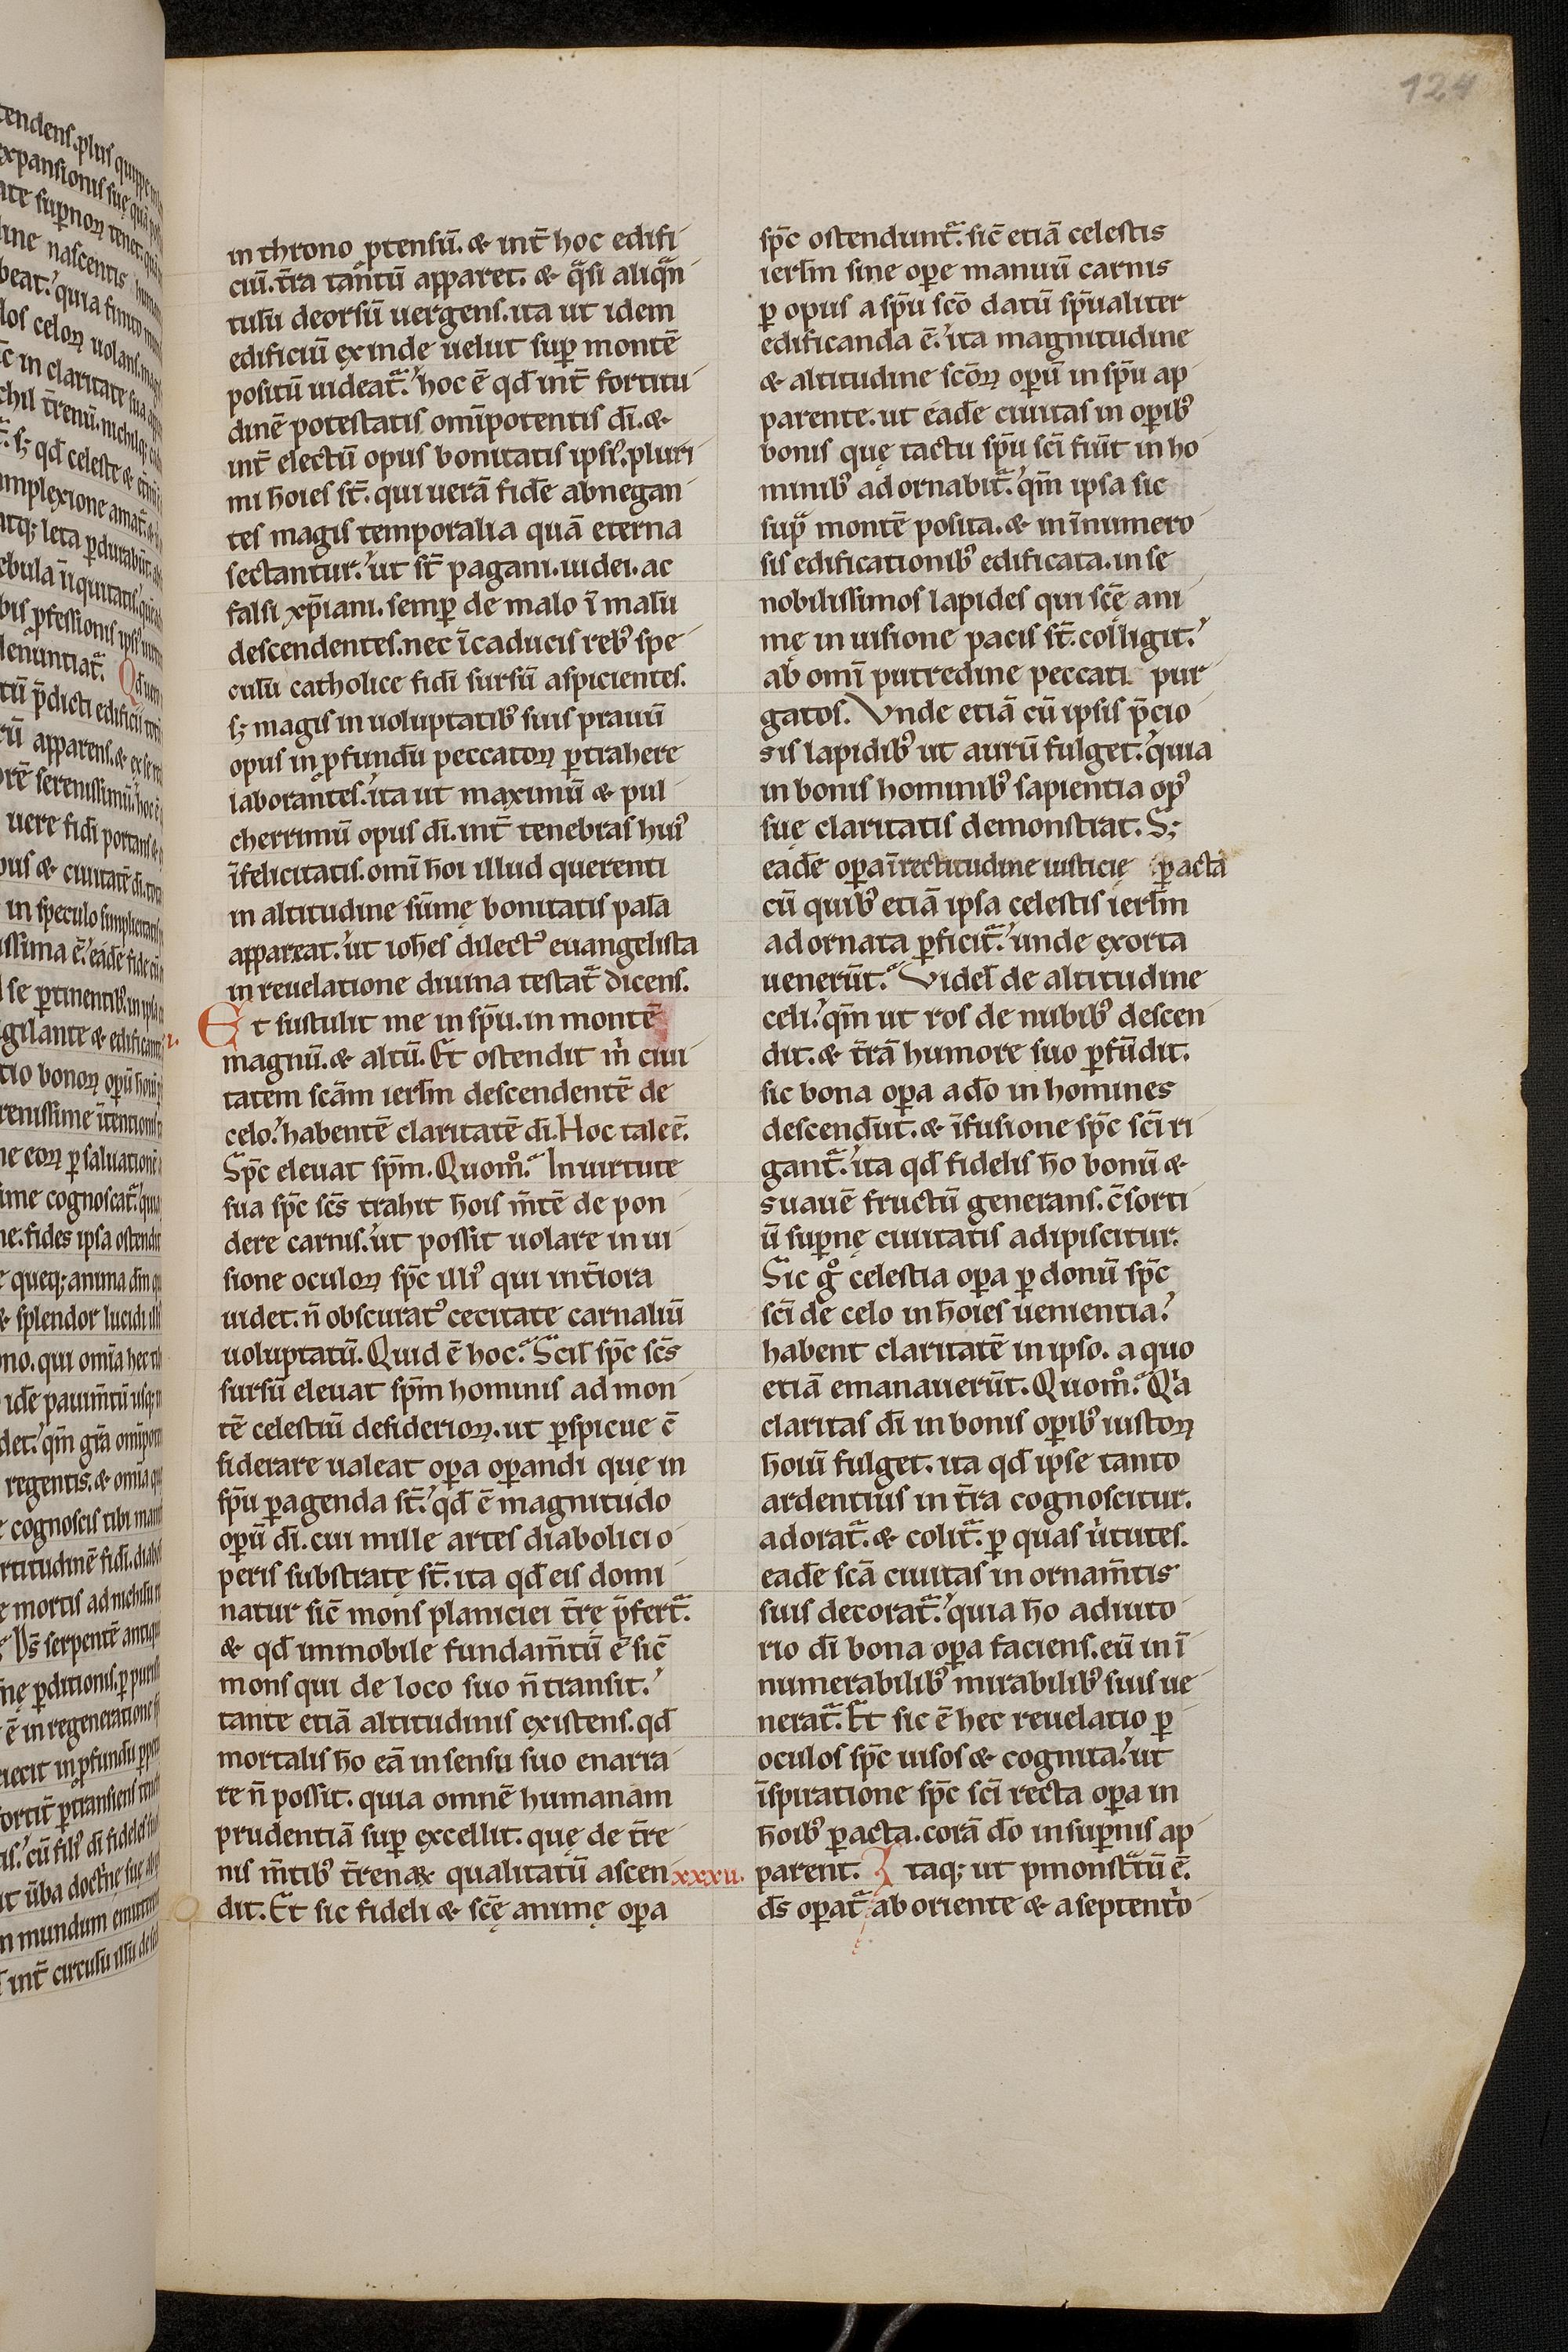 124
in throno ꝓtensū. & int̄ hoc edifi
ciū. t̄ra tantū apparet. & q̄si aliq̄n
tulū deorsū uergens. ita ut idem
edificiū exinde uelut sup montē
positū uideat᷑. hoc ē qđ int̄ fortitu
dinē potestatis om̄ipotentis dī. &
int̄ electū opus bonitatis ipsiꝰ. pluri
mi h̄oies st̄. qui uerā fidē abnegan
tes magis temporalia quā eterna
sectantur. ut st̄ pagani. iudei. ac
falsi xp̄iani. semꝑ de malo ī malū
descendentes. nec ī caducis rebꝰ spe
culū catholice fidī sursū aspicientes.
sꝫ magis in uoluptatibꝰ suis prauū
opus in ꝓfundū peccatoꝝ ꝑtrahere
laborantes. ita ut maximū & pul
cherrimū opus dī. int̄ tenebras huiꝰ
īfelicitatis. om̄i h̄oi illud querenti
in altitudine sūmę bonitatis palā
appareat. ut ioh̄es dilectꝰ euangelista
in reuelatione diuina testat᷑ dicens.
Et sustulit me in sp̄u. in montē
magnū. & altū. Et ostendit m̄ ciui
tatem sc̄am ierl̄m descendentē de
celo. habentē claritatē dī. Hoc tale ē.
Sp̄c eleuat sp̄m. Quom̊. In uirtute
sua sp̄c sc̄s trahit h̄ois m̄tē de pon
dere carnis. ut possit uolare in ui
sione oculoꝝ sp̄c illiꝰ qui int̄iora
uidet. n̄ obscuratꝰ cecitate carnaliū
uoluptatū. Quid ē hoc. Scil̄ sp̄c sc̄s
sursū eleuat sp̄m hominis ad mon
tē celestiū desiderioꝝ. ut ꝑspicue c̄
siderare ualeat oꝑa oꝑandi quę in
sp̄u ꝑagenda st̄. qđ ē magnitudo
opū dī. cui mille artes diabolici o
peris substratę st̄. ita qđ eis domi
natur sic̄ mons planiciei t̄rę p̄fert᷑.
& qđ immobile fundam̄tū ē sic̄
mons qui de loco suo n̄ transit.
tante etiā altitudinis existens. qđ
mortalis h̄o eā in sensu suo enarra
re n̄ possit. quia omnē humanam
prudentiā suꝑ excellit. quę de t̄re
nis m̄tibꝰ t̄renaꝝ qualitatū ascen
dit. Et sic fideli & sc̄ę animę oꝑa
sp̄c ostendunt᷑. sic̄ etiā celestis
ierl̄m sine oꝑe manuū carnis
ꝑ opus a sp̄u sc̄o datū sp̄ualiter
edificanda ē. ita magnitudine
& altitudine sc̄oꝝ oꝑū in sp̄u ap
parente. ut eadē ciuitas in oꝑibꝰ
bonis quę tactu sp̄u sc̄i fiūt in ho
minibꝰ adornabit᷑. qm̄ ipsa sic
sup̄ montē posita. & in īnumero
sis edificationibꝰ edificata. in se
nobilissimos lapides qui sc̄ę ani
mę in uisione pacis st̄. colligit.
ab om̄i putredine peccati pur
gatos. Vnde etiā cū ipsis p̄cio
sis lapidibꝰ ut aurū fulget. quia
in bonis hominibꝰ sapientia opꝰ
suę claritatis demonstrat. Sꝫ
eadē oꝑa ī rectitudine iusticię ꝑacta
cū quibꝰ etiā ipsa celestis ierl̄m
adornata ꝑficit᷑. unde exorta
uenerūt. Videl̄ de altitudine
celi. qm̄ ut ros de nubibꝰ descen
dit. & t̄rā humore suo ꝑfūdit.
sic bona oꝑa a dō in homines
descendūt. & īfusione sp̄c sc̄i ri
gant᷑. ita qđ fidelis h̄o bonū &
suauē fructū generans. c̄sorti
ū suꝑnę ciuitatis adipiscitur.
Sic gͦ celestia oꝑa ꝑ donū sp̄c
sc̄i de celo in h̄oies uenientia.
habent claritatē in ipso. a quo
etiā emanauerūt. Quom̊. Qͥa
claritas dī in bonis oꝑibꝰ iustoꝝ
h̄oiū fulget. ita qđ ipse tanto
ardentius in t̄ra cognoscitur.
adorat᷑. & colit᷑. ꝑ quas uͥtutes.
eadē sc̄a ciuitas in ornam̄tis
suis decorat᷑. quia h̄o adiuto
rio dī bona oꝑa faciens. eū in ī
numerabilibꝰ mirabilibꝰ suis ue
nerat᷑. Et sic ē hec reuelatio ꝑ
oculos sp̄c uisos & cognita. ut
īspiratione sp̄c sc̄i recta oꝑa in
h̄oibꝰ ꝑacta. corā dō in suꝑnis ap
xxxu. parent. Itaqꝫ ut pmonst᷑tū ē.
ds̄ oꝑat᷑ ab oriente & a septent̊o